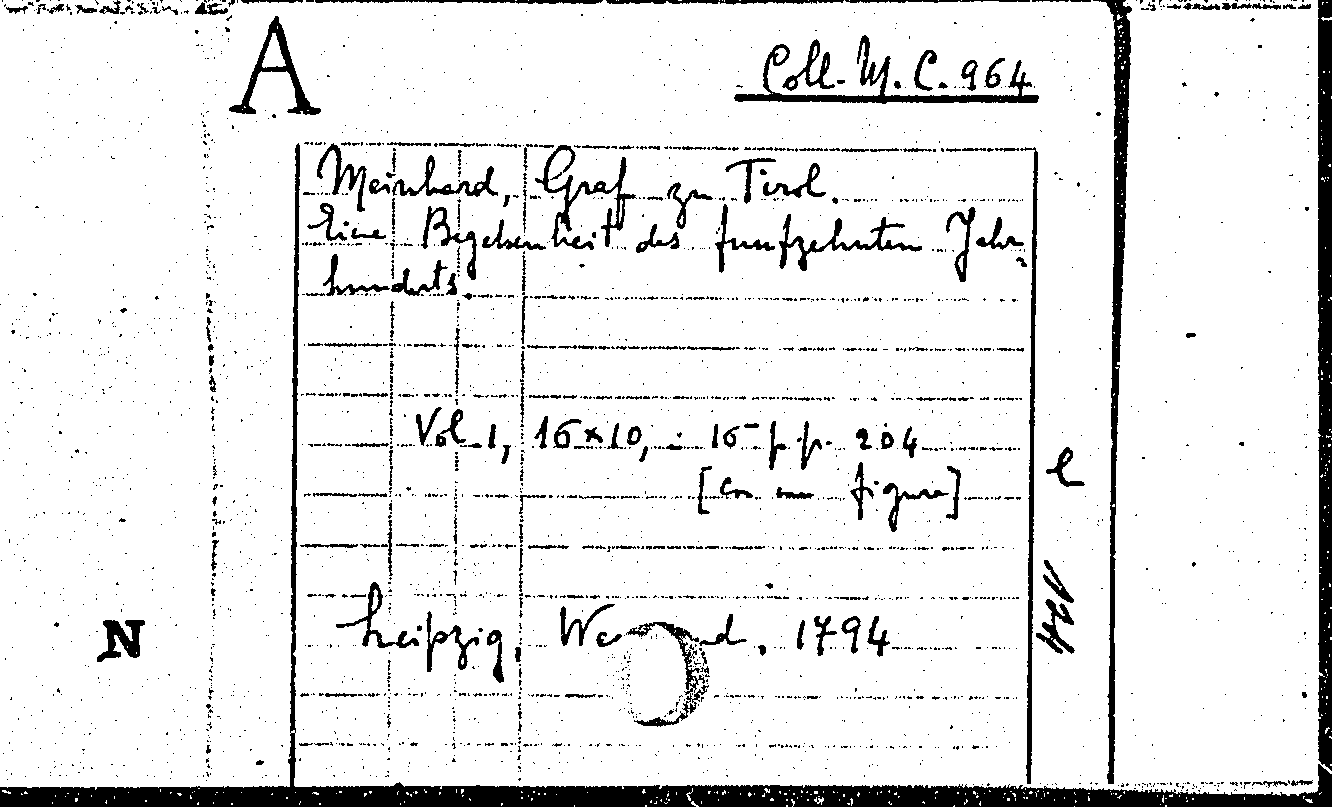 A
Coll. M. C. 964
Meinhard, Graf zu Tirol.
Eine Begebenheit des funfzehnten Jahr-
hunderts.
Vol. 1, 16×10, : 16° pp. 204
[Con una figura]
e
Leipzig, , 1794
N